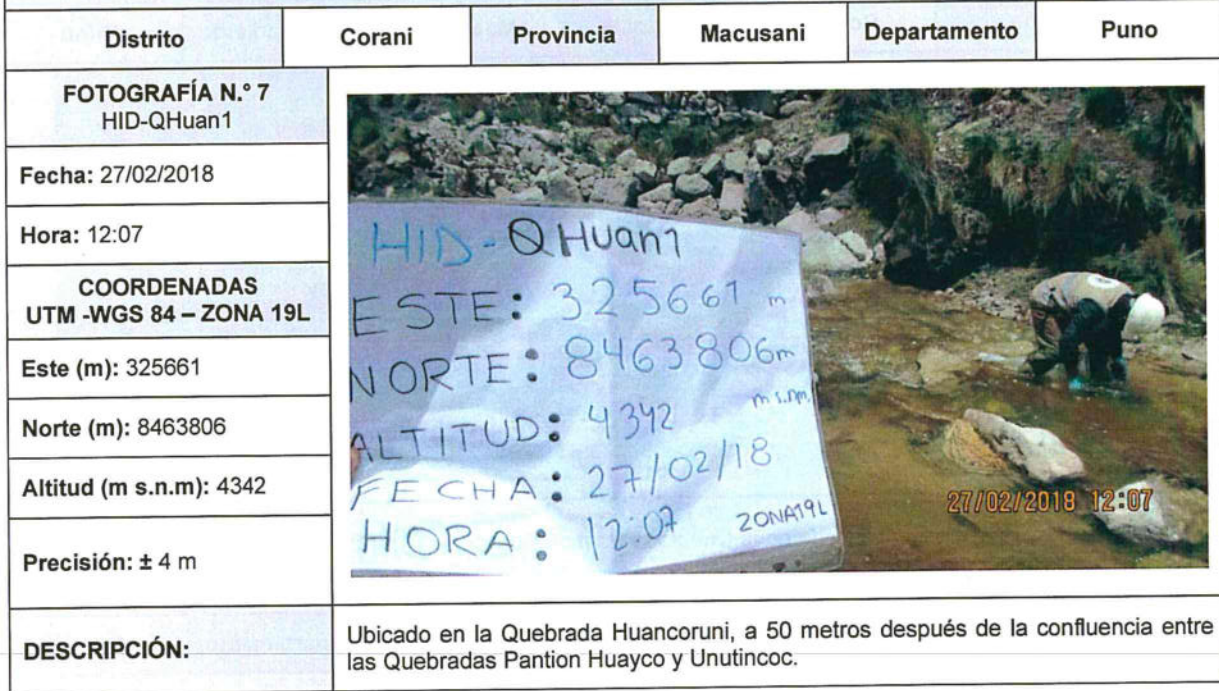 Distrito Corani Provincia Macusani Departamento Puno
FOTOGRAFÍA N.° 7
HID-QHuan1
Fecha: 27/02/2018
Hora: 12:07
COORDENADAS
UTM -WGS 84 – ZONA 19L
Este (m): 325661
Norte (m): 8463806
Altitud (m s.n.m): 4342
Precisión: ± 4 m
HID-QHuan1
ESTE: 325661 m
NORTE: 8463806m
ALTITUD: 4342 m s.n.m.
FECHA: 27/02/18
HORA: 12:07 ZONA19L
27/02/2018 12:07
DESCRIPCIÓN:
Ubicado en la Quebrada Huancoruni, a 50 metros después de la confluencia entre
las Quebradas Pantion Huayco y Unutincoc.